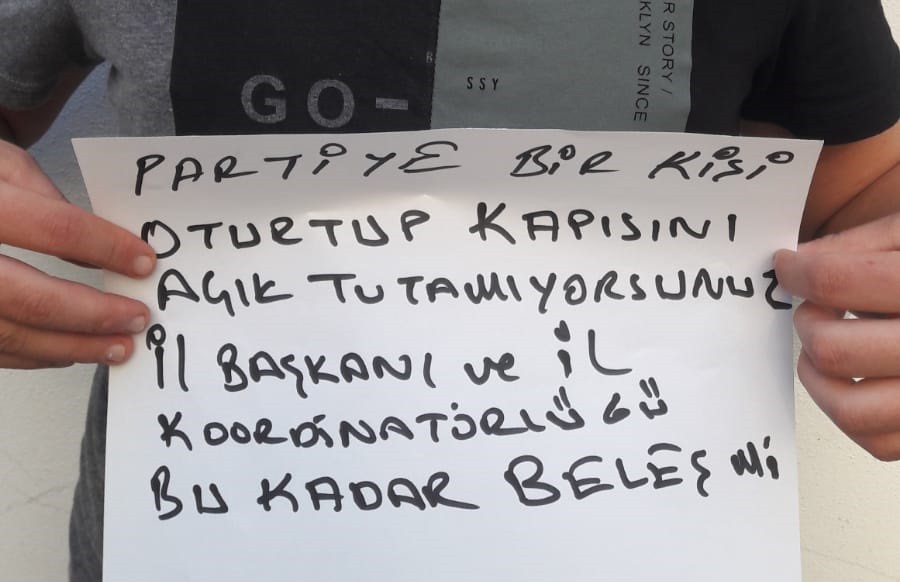 GO-
SSY
R STORY /
KLYN SINCE
PARTİYE BİR KİŞİ
OTURTUP KAPISINI
AÇIK TUTAMIYORSUNUZ
İl BAŞKANI ve İL
KOORDİNATÖRLÜĞÜ
BU KADAR BELEŞ Mİ